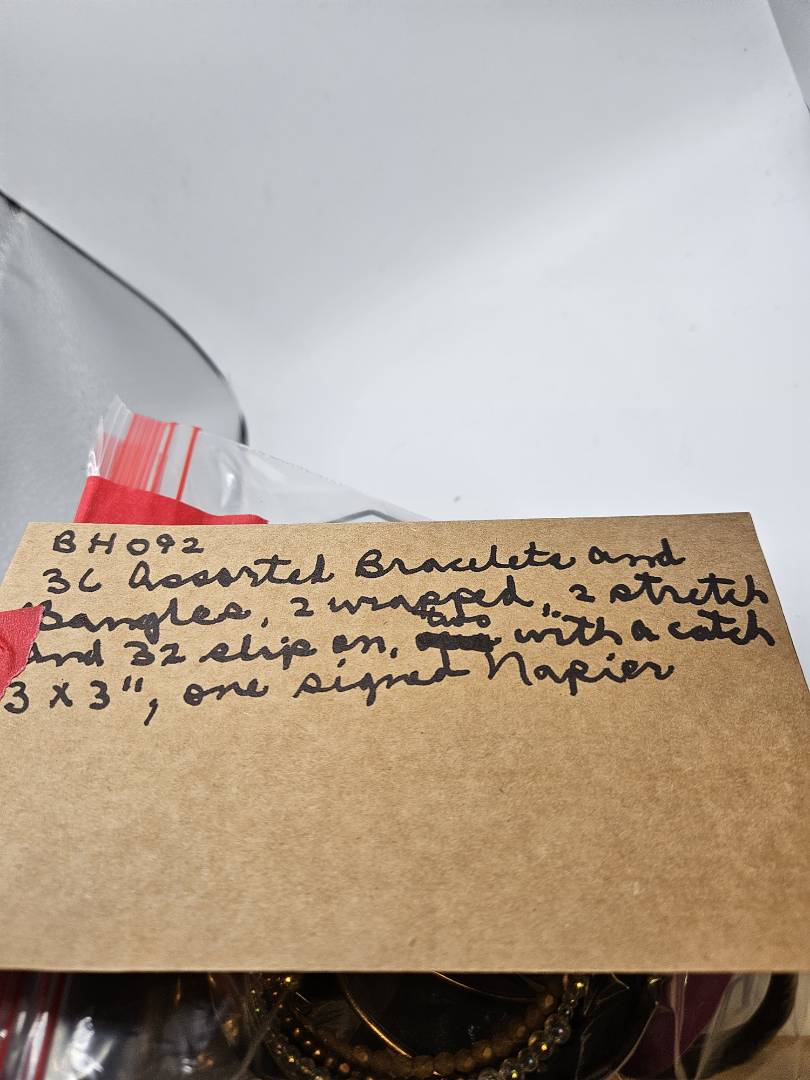 BH092
36 Assorted Bracelets and
Bangles, 2 wrapped, 2 stretch
two
and 32 slip on, with a catch
3 x 3", one signed Napier